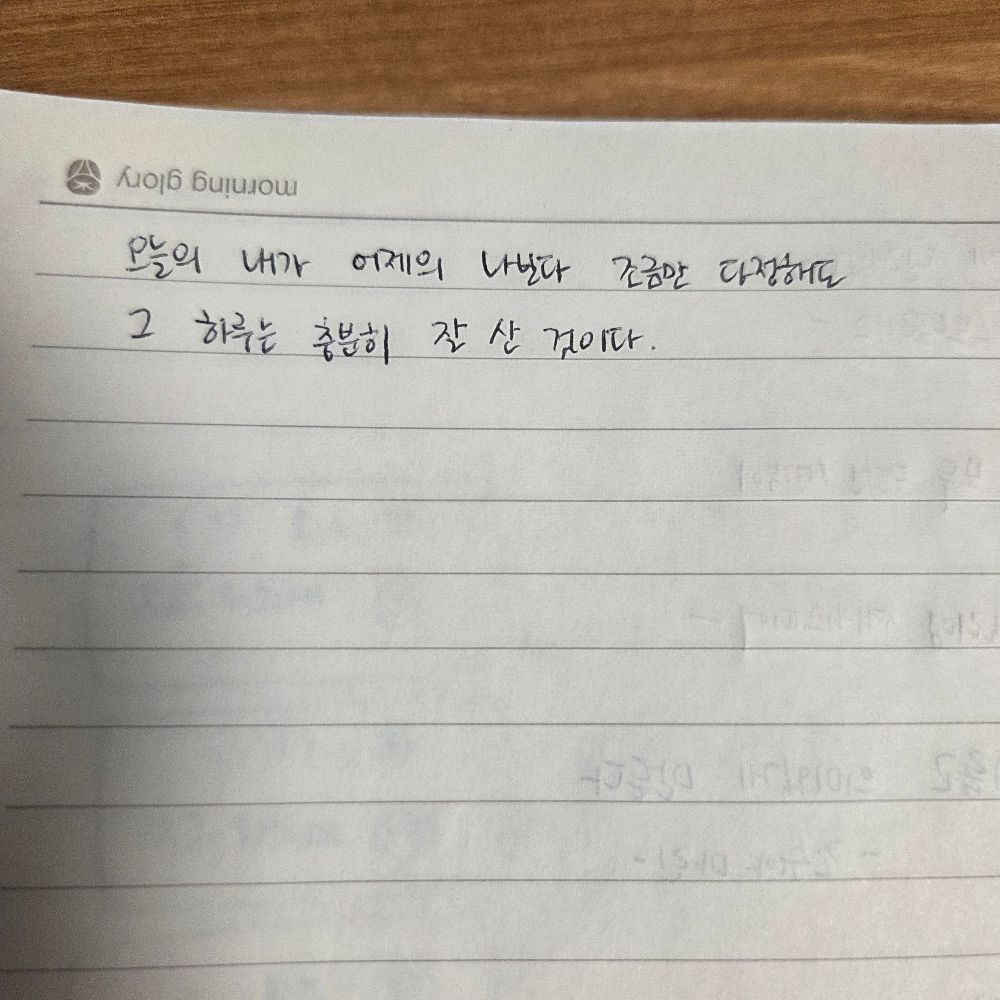 morning glory
오늘의 내가 어제의 나보다 조금만 다정해도
그 하루는 충분히 잘 산 것이다.